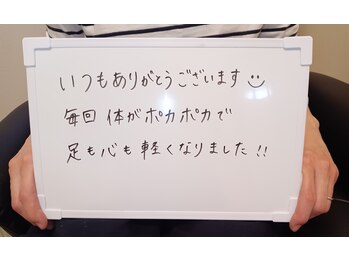 いつもありがとうございます☺
毎回 体がポカポカで
足も心も軽くなりました!!